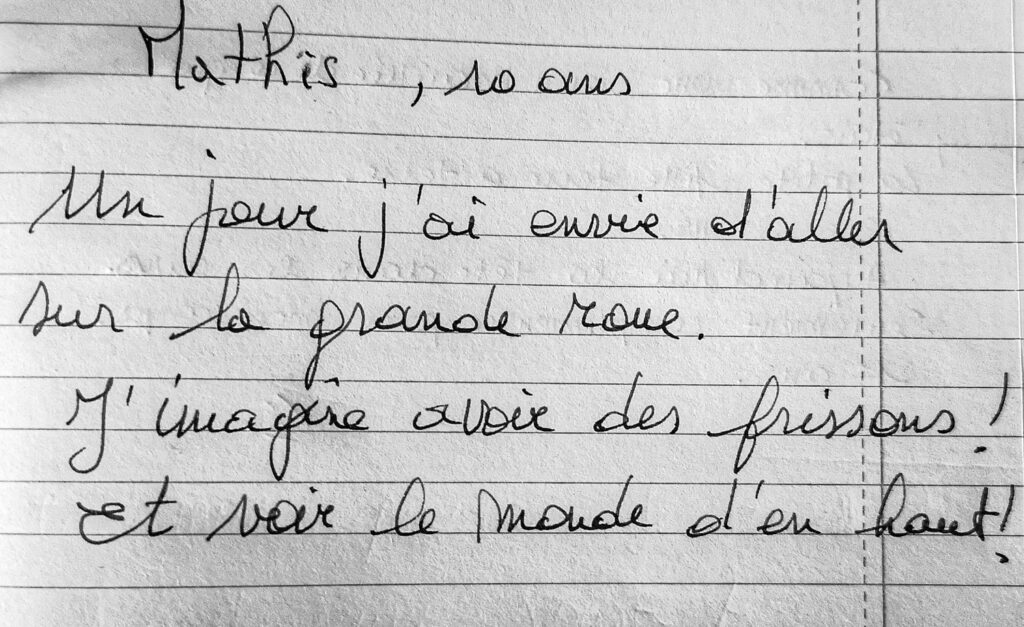 Mathis, 10 ans
Un jour j'ai envie d'aller
sur la grande roue.
J'imagine avoir des frissons !
Et voir le monde d'en haut !